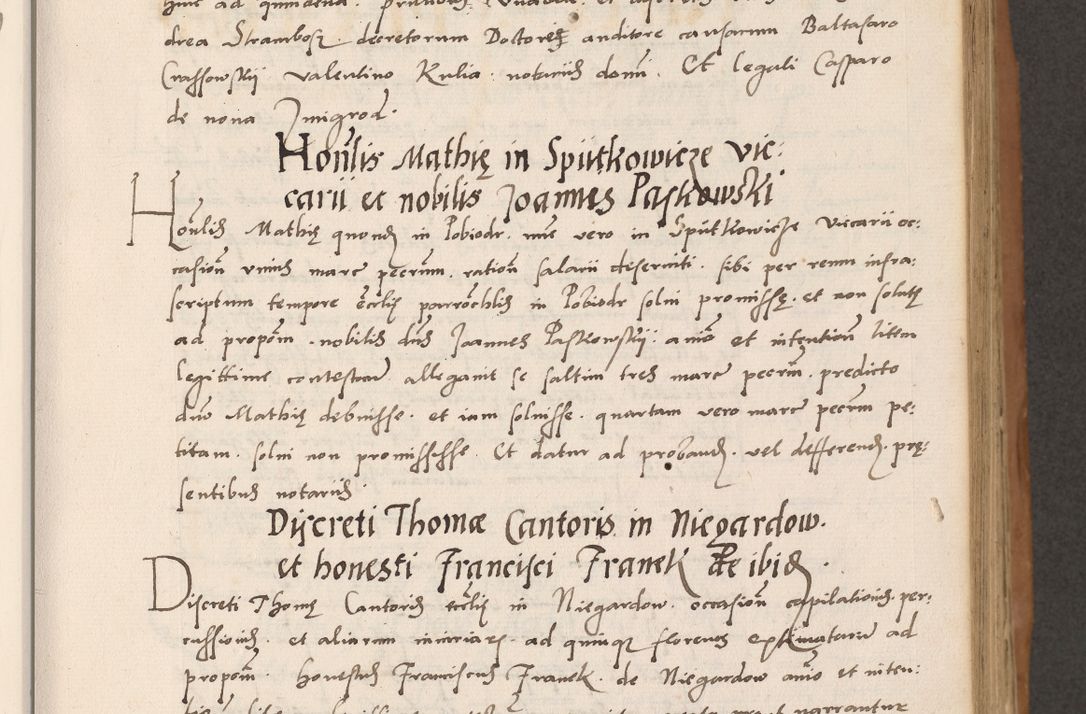 drea Strambosz. decretorum Doctores auditore causarum Baltasaro
Crassowskij Valentino Kulia. notariis domi. Et legali Casparo
de nona Imigrod.
Honlis Mathię in Spütkowicze vic:
carii et nobilis Joannes Paskowski
Honlis Mathię quond in Pobiedr. nunc vero in Spütkowicze Vicarii oc:
casion unius marc pecrum. ration salarii deserviti. sibi per renu infra:
scriptum tempore ecclię parrochlis in Pobiedr solui promissę. et non solutę
ad propom. nobilis dns Joannes Paskowskij. animo et intention litem
legittime contestan allegavit se saltim tres marc pecrum. predicto
dno Mathię debuisse. et iam soluisse. quartam vero marc pecrum pe:
titam. solui non promisisse. Et datur ad proband. vel defferend. prę:
sentibus notariis
Discreti Thomæ Cantoris in Niegardow.
et honesti Francisci Franek de ibid.
Discreti Thomę Cantoris ecclię in Niegardow. occasion capilationis. per:
cussionis. et aliarum iniuriar. ad quinque florenos estimatarum ad
propom. honestus Franciscus Franek. de Niegardow animo et inten: